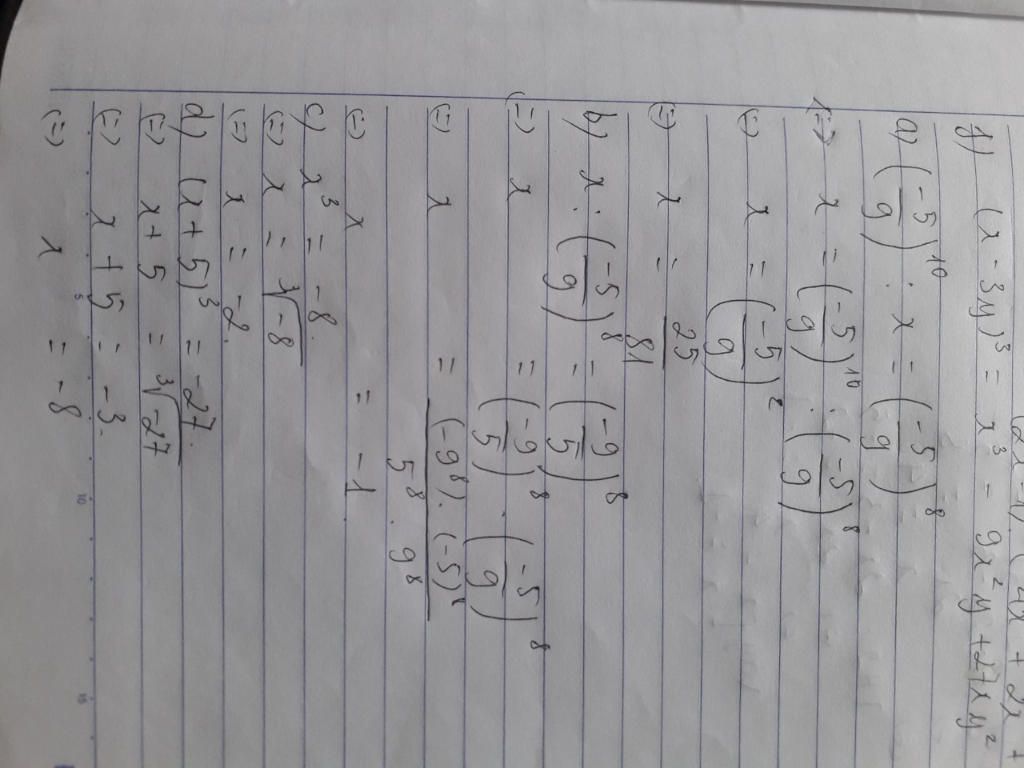 (2x - 1) (4x + 2x +
f) (x - 3y)³ = x³ - 9x²y + 27xy²
a) (-5/9)¹⁰ : x = (-5/9)⁸
(=) x = (-5/9)¹⁰ : (-5/9)⁸
(=) x = (-5/9)²
(=) x = 25/81
b) x : (-5/9)⁸ = (-9/5)⁸
(=) x = (-9/5)⁸ . (-5/9)⁸
(=) x = (-9⁸) . (-5)⁸ / 5⁸ . 9⁸
(=) x = -1.
c) x³ = -8.
(=) x = ³√-8
(=) x = -2.
d) (x + 5)³ = -27.
(=) x + 5 = ³√-27
(=) x + 5 = -3.
(=) x = -8